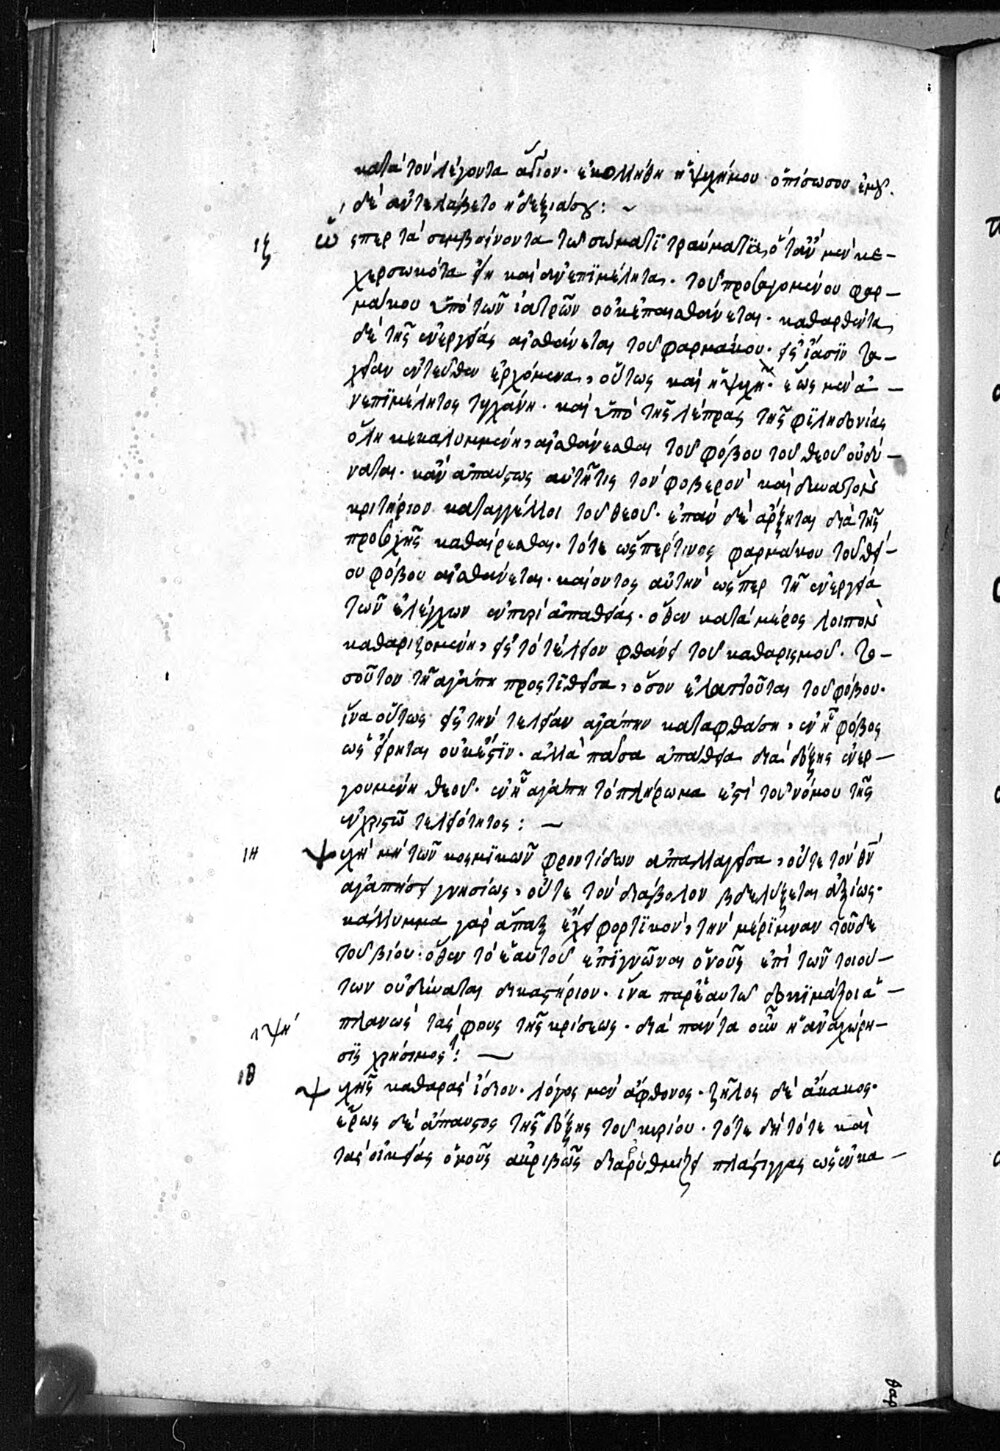 κατὰ τὸν λέγοντα ἅγιον· ἐκολλήθη ἡ ψυχή μου ὀπίσω σου ἐμοῦ
δὲ ἀντελάβετο ἡ δεξιά σου:
ιζ ὥσπερ τὰ συμβαίνοντα τῷ σώματι τραύματα, ὅταν μὲν κε-
χερσωκότα ᾖ καὶ ἀνεπιμέλητα· τοῦ προσαγομένου φαρ-
μάκου ὑπὸ τῶν ἰατρῶν οὐκ ἐπαισθάνεται· καθαρθέντα
δὲ τῆς ἐνεργείας αἰσθάνεται τοῦ φαρμάκου· εἰς ἴασιν τε-
λείαν ἐντεῦθεν ἐρχόμενα, οὕτως καὶ ἡ ψυχὴ· ἕως μὲν ἀ-
νεπιμέλητος τυγχάνη· καὶ ὑπὸ τῆς λέπρας τῆς φιληδονίας
ὅλη κεκαλυμμένη, αἰσθάνεσθαι τοῦ φόβου τοῦ θεοῦ οὐ δύ-
ναται· κἂν ἀπαύστως αὐτῇ τις τὸν φοβερὸν καὶ δυνατὸν
κριτήριον καταγγέλλοι τοῦ θεοῦ· ἐπὰν δὲ ἄρξηται διὰ τῆς
προσοχῆς καθαίρεσθαι· τότε ὥσπερ τινος φαρμάκου τοῦ θεί-
ου φόβου αἰσθάνεται· καίοντος αὐτὴν ὥσπερ τῇ ἐνεργείᾳ
τῶν ἐλέγχων ἐν πυρὶ ἀπαθείας· ὅθεν κατὰ μέρος λοιπὸν
καθαριζομένη, εἰς τὸ τέλειον φθάνει τοῦ καθαρισμοῦ· το-
σοῦτον τῇ ἀγάπῃ προστιθεῖσα, ὅσον ἐλαττοῦται τοῦ φόβου·
ἵνα οὕτως εἰς τὴν τελείαν ἀγάπην καταφθάση, ἐν ᾗ φόβος
ὡς εἴρηται οὐκ ἔστιν· ἀλλὰ πᾶσα ἀπάθεια διὰ δόξης ἐνερ-
γουμένη θεοῦ· ἐν ᾗ ἀγάπη τὸ πλήρωμα ἐστὶ τοῦ νόμου τῆς
ἐν χριστῷ τελειότητος:
ιη ψυχὴ μὴ τῶν κοσμικῶν φροντίδων ἀπαλλαγεῖσα, οὔτε τὸν θν
ἀγαπήσει γνησίως, οὔτε τὸν διάβολον βδελύξεται ἀξίως·
κάλλυμμα γὰρ ἅπαξ ἔχει φορτικὸν, τὴν μέριμναν τοῦδε
τοῦ βίου· ὅθεν τὸ ἑαυτοῦ ἐπιγνῶναι ὁ νοῦς ἐπὶ τῶν τοιού-
των οὐ δύναται δικαστήριον· ἵνα παρ᾽ ἑαυτῷ δοκιμάζοι ἀ-
πλανῶς τὰς ψήφους τῆς κρίσεως· διὰ πάντα οὖν ἡ ἀναχώρη-
σις χρήσιμος:
ιθ ψυχῆς καθαρᾶς ἴδιον· λόγος μὲν ἄφθονος· ζῆλος δὲ ἄκακος·
ἔρως δὲ ἄπαυστος τῆς δόξης τοῦ κυρίου· τότε δὴ τότε καὶ
τὰς οἰκείας ὁ νοῦς ἀκριβῶς διαρυθμίζει πλάστιγγας ὡς ἐν κα-